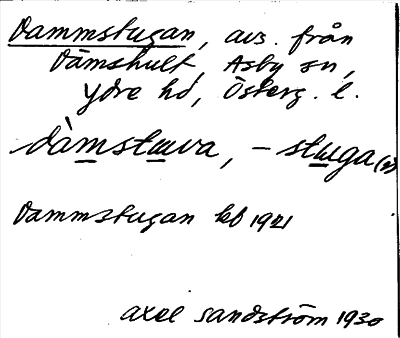 Dammstugan, avs. från
Dämshult, Asby sn,
Ydre hd, Österg. l.
dàmstuva, – stuga (v)
Dammstugan kb 1921
Axel Sandström 1930